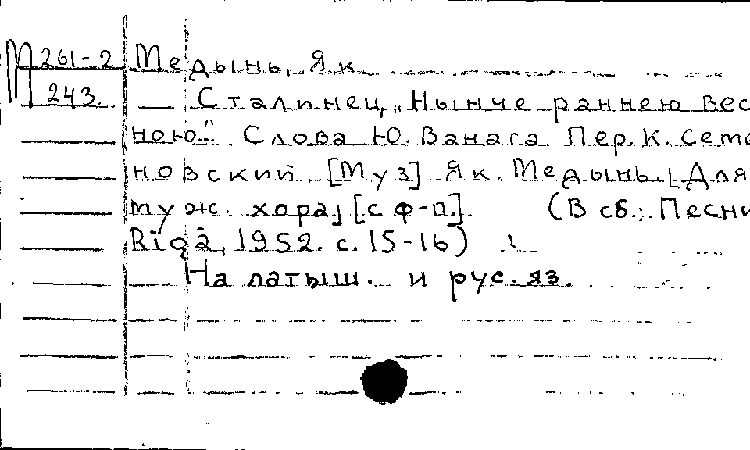 М 261-2 Медынь, Як
243. — Сталинец „Нынче раннею вес
ною". Слова Ю. Ванага Пер. К. Семе
новский [Муз] Як. Медынь. [Для
муж. хора] [с ф-п.]. (В сб.: Песни
Rīgā, 1952. с. 15-16)
На латыш. и рус. яз.